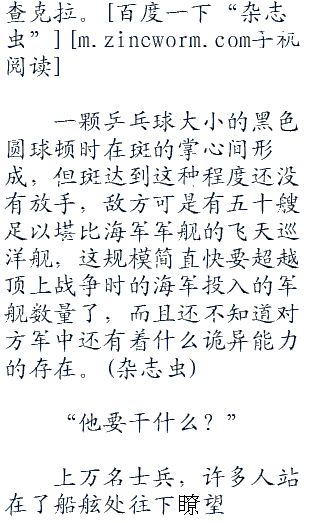 查克拉。[百度一下“杂志
虫”][m.zineworm.com手机
阅读]
一颗乒乓球大小的黑色
圆球顿时在斑的掌心间形
成，但斑达到这种程度还没
有放手，敌方可是有五十艘
足以堪比海军军舰的飞天巡
洋舰，这规模简直快要超越
顶上战争时的海军投入的军
舰数量了，而且还不知道对
方军中还有着什么诡异能力
的存在。(杂志虫)
“他要干什么？”
上万名士兵，许多人站
在了船舷处往下瞭望